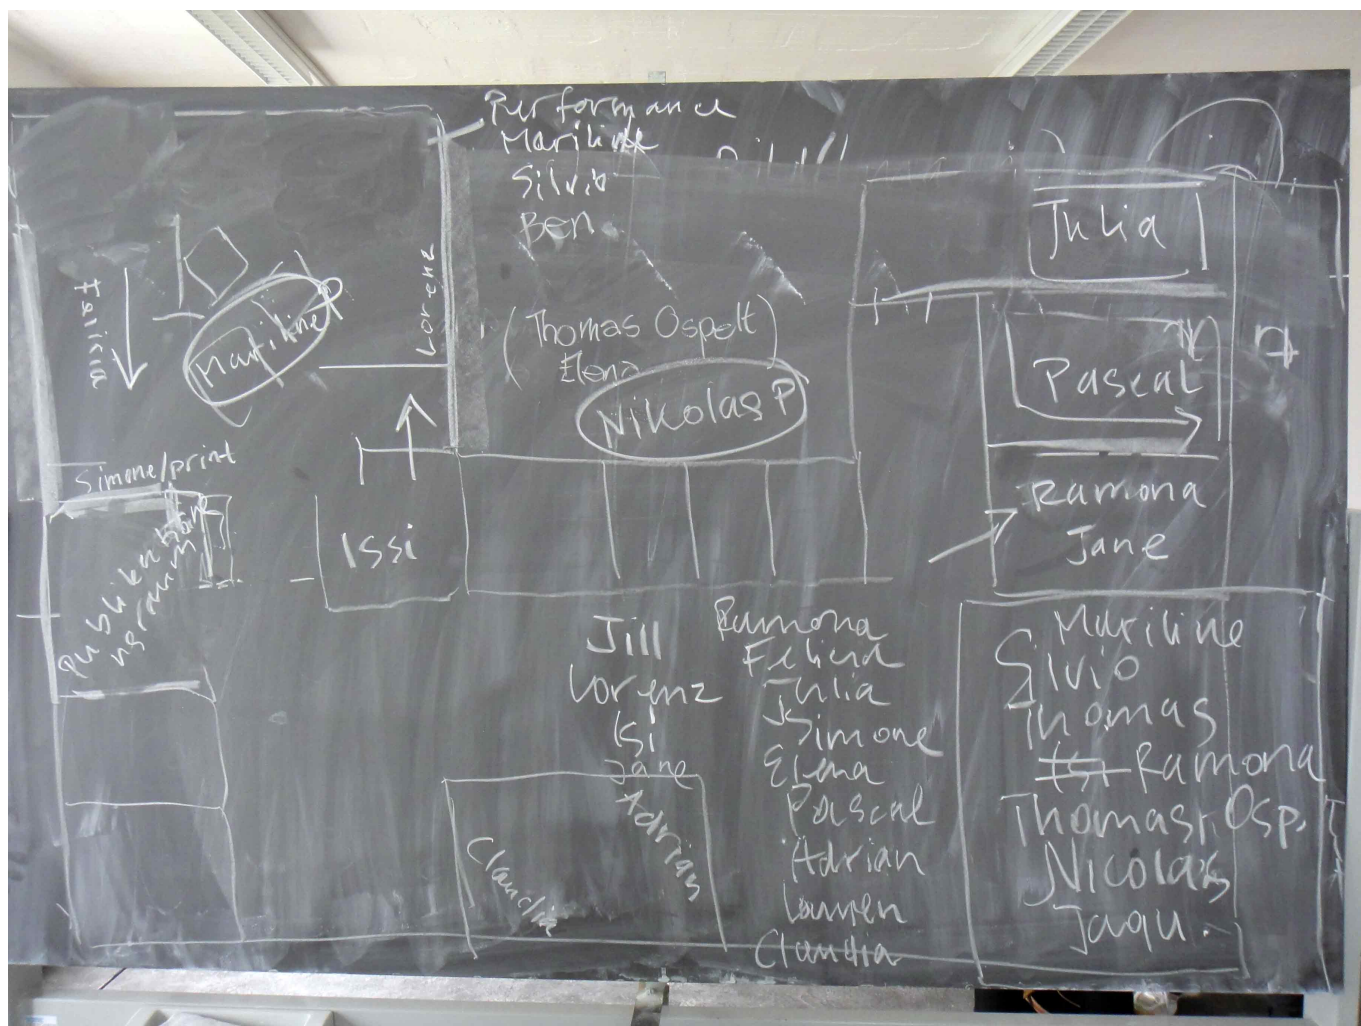 Performance
Mariline
Silvio
Ben
Julia
Felicia
Mariline
Lorenz
(Thomas Ospelt
Elena)
Nikolas P
Pascal
Simone/print
Publikatio
nsraum
Issi
Ramona
Jane
Jill
Lorenz
Isi
Jane
Adrian
Claudia
Ramona
Felicia
Julia
Simone
Elena
Pascal
Adrian
Lauren
Claudia
Mariline
Silvio
Thomas
Ramona
Thomas Osp.
Nicolas
Jaqu.